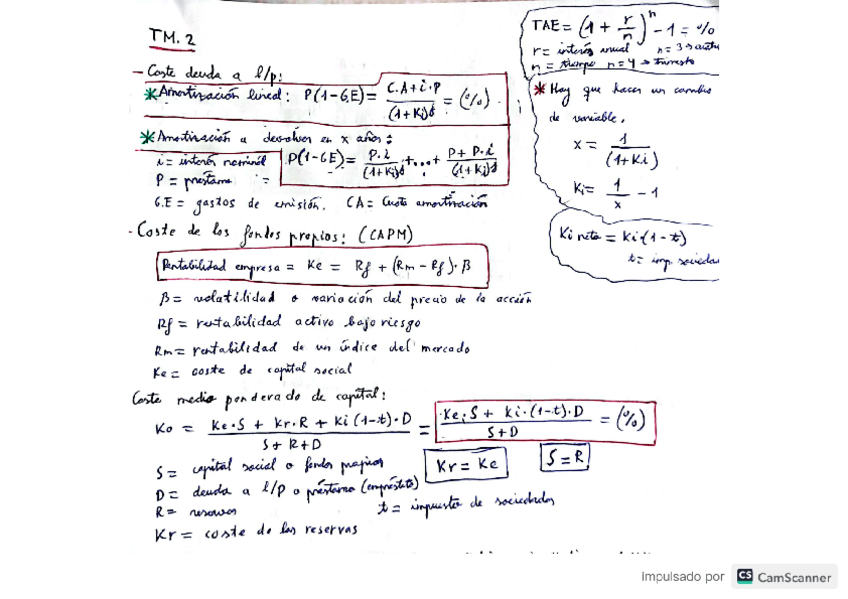 TM. 2
- Coste deuda a l/p:
* Amortización lineal: P(1-G.E) = C.A + i·P / (1+Ki)^1 = (%)
* Amortización a devolver en x años:
i = interés nominal
P(1-GE) = P·i / (1+Ki)^1 + ... + P + P·i / (1+Ki)^1
P = préstamo
G.E = gastos de emisión. CA = Cuota amortización
TAE = (1 + r/n)^n - 1 = %
r = interés anual n = 3 →
n = tiempo n = 4 → trimestre
* Hay que hacer un cambio
de variable.
x = 1 / (1+Ki)
Ki = 1/x - 1
Ki neto = Ki·(1-t)
t = imp. sociedad
- Coste de los fondos propios: (CAPM)
Rentabilidad empresa = Ke = Rf + (Rm - Rf)·β
β = volatilidad o variación del precio de la acción
Rf = rentabilidad activo bajo riesgo
Rm = rentabilidad de un índice del mercado
Ke = coste de capital social
Coste medio ponderado de capital:
Ko = Ke·S + Kr·R + Ki(1-t)·D / S+R+D = Ke·S + Ki·(1-t)·D / S+D = (%)
S = capital social o fondos propios
Kr = Ke
S=R
D = deuda a l/p o préstamo (empréstito)
R = reservas
t = impuesto de sociedades
Kr = coste de las reservas
Impulsado por CS CamScanner